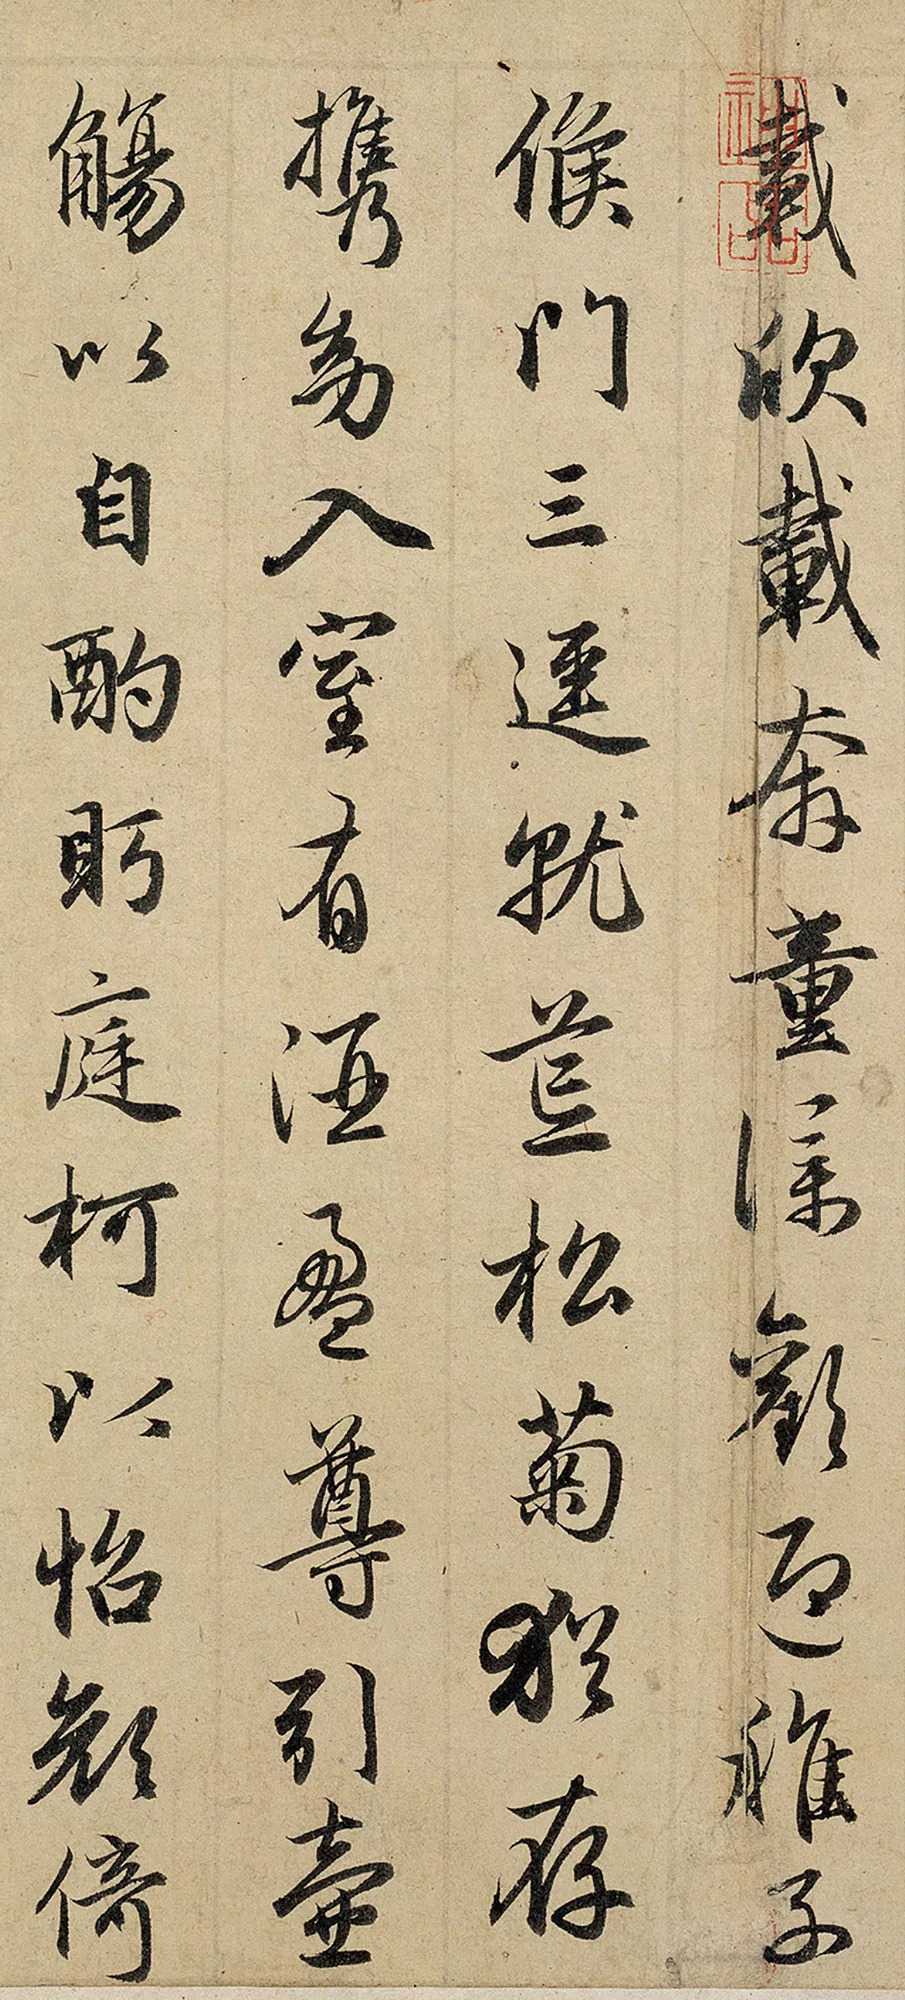 載欣載奔童僕歡迎稚子
候門三逕就荒松菊猶存
携幼入室有酒盈尊引壺
觴以自酌眄庭柯以怡顏倚
神品